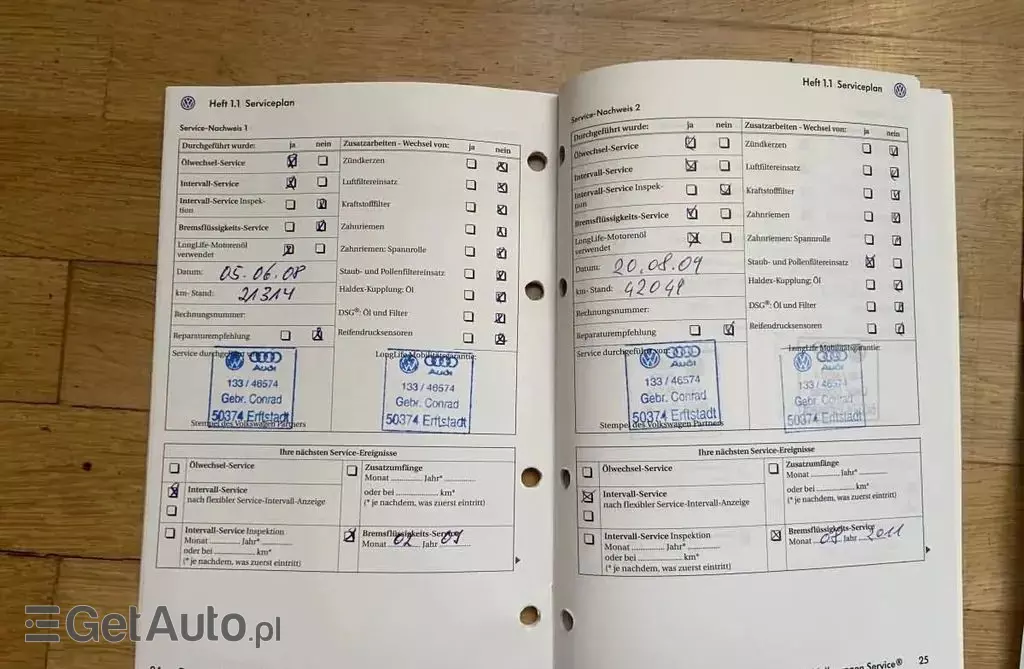 Heft 1.1 Serviceplan
Service-Nachweis 1
Durchgeführt wurde: ja nein
Ölwechsel-Service
Intervall-Service
Intervall-Service Inspek-
tion
Bremsflüssigkeits-Service
LongLife-Motorenöl
verwendet
Datum: 05.06.08
km-Stand: 21314
Rechnungsnummer:
Reparaturempfehlung
Zusatzarbeiten - Wechsel von: ja nein
Zündkerzen
Luftfiltereinsatz
Kraftstofffilter
Zahnriemen
Zahnriemen: Spannrolle
Staub- und Pollenfiltereinsatz
Haldex-Kupplung: Öl
DSG®: Öl und Filter
Reifendrucksensoren
Service durchgeführt von:
Audi
133 / 46574
Gebr. Conrad
50374 Erftstadt
Stempel des Volkswagen Partners
LongLife Mobilitätsgarantie:
Audi
133 / 46574
Gebr. Conrad
50374 Erftstadt
Ihre nächsten Service-Ereignisse
Ölwechsel-Service
Intervall-Service
nach flexibler Service-Intervall-Anzeige
Intervall-Service Inspektion
Monat Jahr*
oder bei km*
(* je nachdem, was zuerst eintritt)
Zusatzumfänge
Monat Jahr*
oder bei km*
(* je nachdem, was zuerst eintritt)
Bremsflüssigkeits-Service
Monat 02 Jahr 09
Heft 1.1 Serviceplan
Service-Nachweis 2
Durchgeführt wurde: ja nein
Ölwechsel-Service
Intervall-Service
Intervall-Service Inspek-
tion
Bremsflüssigkeits-Service
LongLife-Motorenöl
verwendet
Datum: 20.08.09
km-Stand: 42048
Rechnungsnummer:
Reparaturempfehlung
Zusatzarbeiten - Wechsel von: ja nein
Zündkerzen
Luftfiltereinsatz
Kraftstofffilter
Zahnriemen
Zahnriemen: Spannrolle
Staub- und Pollenfiltereinsatz
Haldex-Kupplung: Öl
DSG®: Öl und Filter
Reifendrucksensoren
Service durchgeführt von:
Audi
133 / 46574
Gebr. Conrad
50374 Erftstadt
Stempel des Volkswagen Partners
LongLife Mobilitätsgarantie:
Audi
133 / 46574
Gebr. Conrad
50374 Erftstadt
Ihre nächsten Service-Ereignisse
Ölwechsel-Service
Intervall-Service
nach flexibler Service-Intervall-Anzeige
Intervall-Service Inspektion
Monat Jahr*
oder bei km*
(* je nachdem, was zuerst eintritt)
Zusatzumfänge
Monat Jahr*
oder bei km*
(* je nachdem, was zuerst eintritt)
Bremsflüssigkeits-Service
Monat 08 Jahr 2011
Service® 25
GetAuto.pl